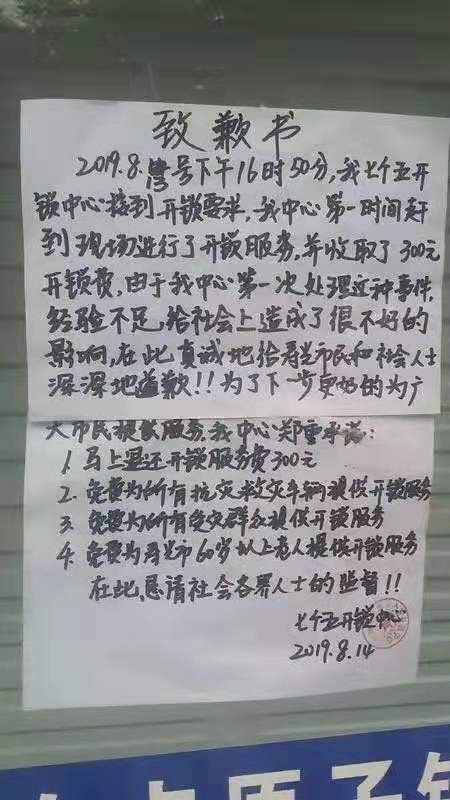 致歉书
2019.8.号下午16时50分,我七个五开
锁中心接到开锁要求,我中心第一时间赶
到现场进行了开锁服务,并收取了300元
开锁费,由于我中心第一次处理这种事件,
经验不足给社会上造成了很不好的
影响,在此真诚地给寿光市民和社会人士
深深地道歉!!为了下一步更好的为广
大市民提供服务,我中心郑重承诺:
1.马上退还开锁服务费300元
2.免费为所有抗灾救灾车辆提供开锁服务
3.免费为所有受灾群众提供开锁服务
4.免费为寿光市60岁以上老人提供开锁服务
在此,恳请社会各界人士的监督!!
七个五开锁中心
2019.8.14